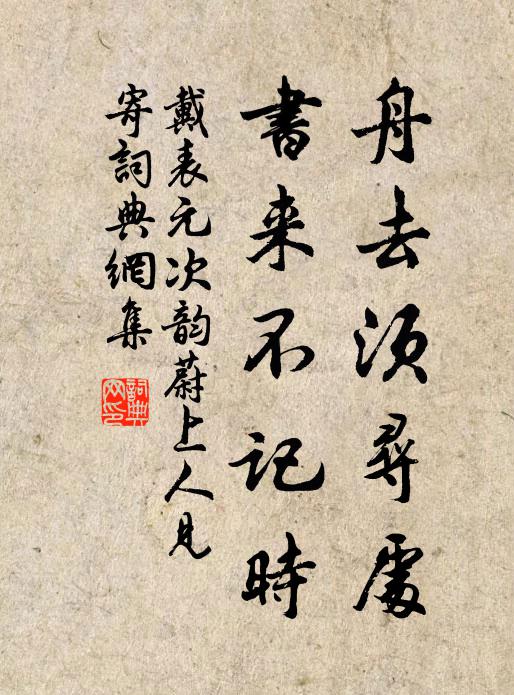 舟去須尋處
書来不記時
戴表元次韵蔚上人見
寄詞典網集
詞典
网印